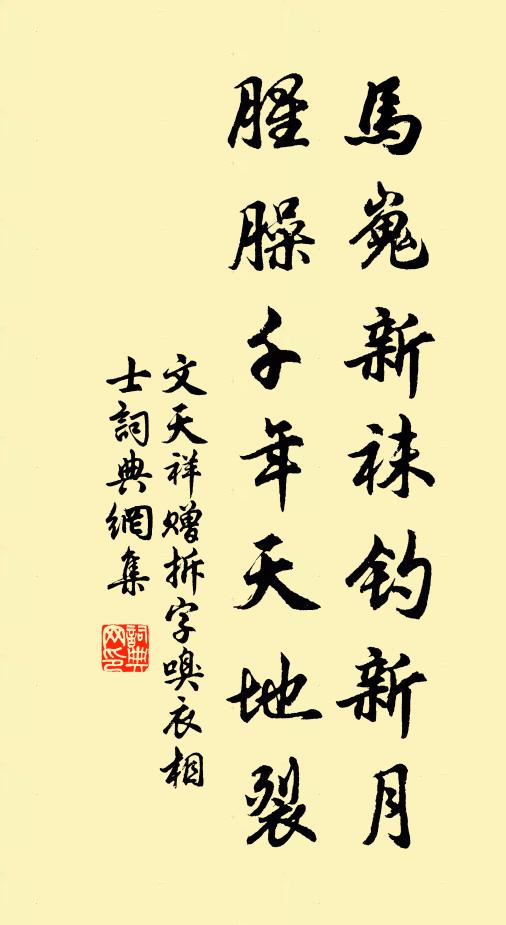 馬嵬新袜鈞新月
腥臊千年天地裂
文天祥贈拆字嗅衣相
士詞典網集
詞典
網印